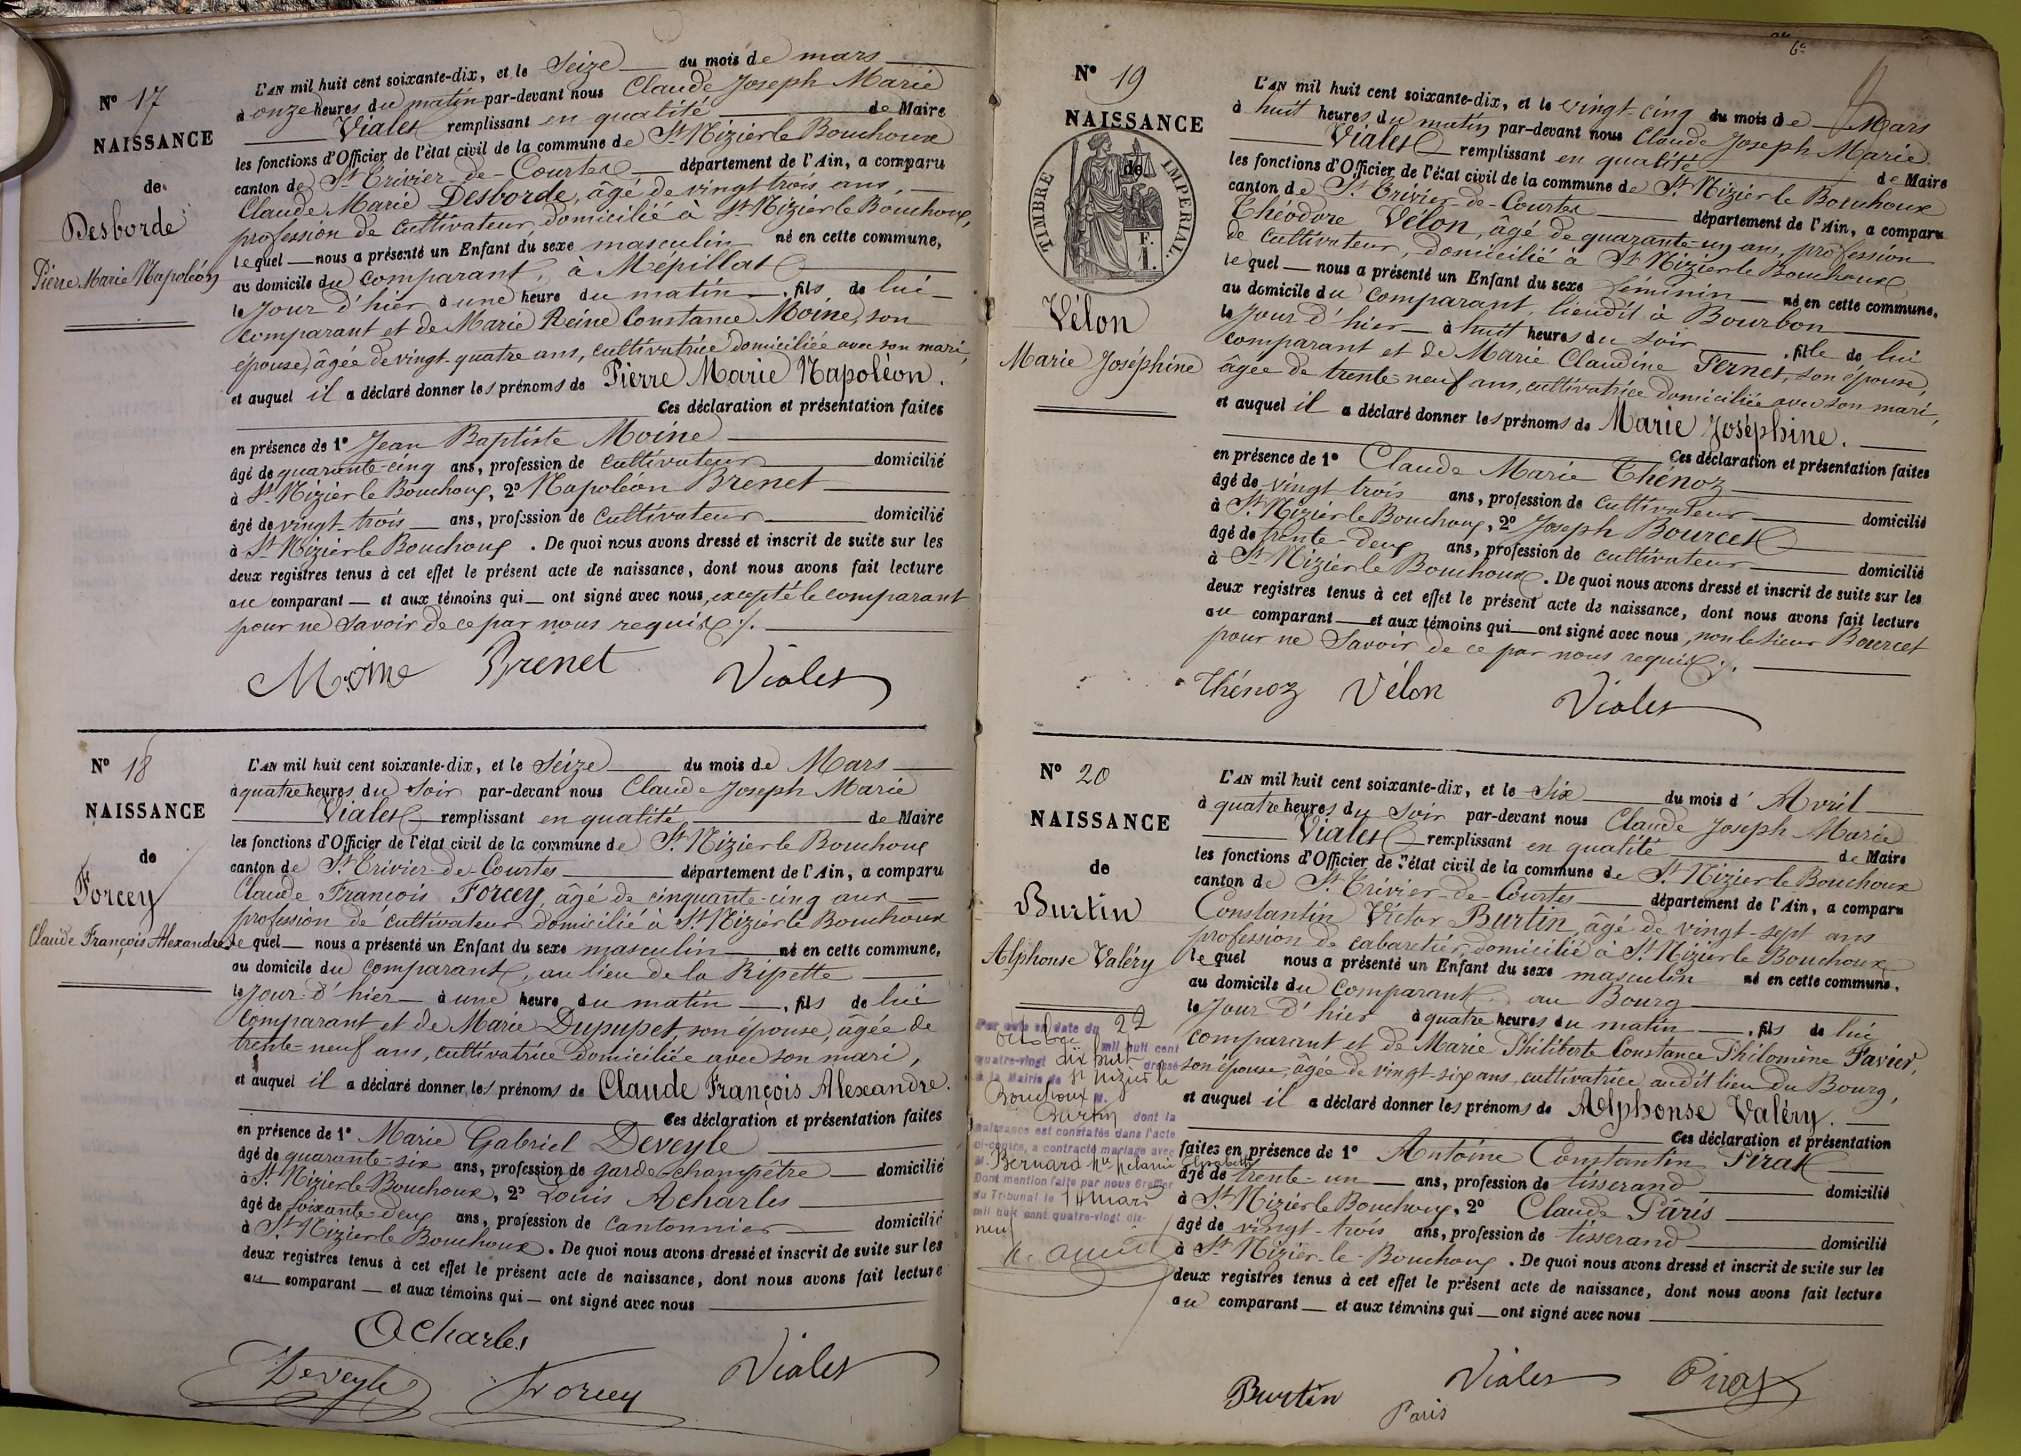 N° 17
NAISSANCE
de
Desborde
Pierre Marie Napoléon
L'AN mil huit cent soixante-dix, et le Seize du mois de mars
à onze heures du matin par-devant nous Claude Joseph Marie
Vialet remplissant en qualité de Maire
les fonctions d'Officier de l'état civil de la commune de St Nizier le Bouchoux
canton de St Trivier-de-Courtes département de l'Ain, a comparu
Claude Marie Desborde, âgé de vingt trois ans,
profession de cultivateur, domicilié à St Nizier le Bouchoux,
lequel nous a présenté un Enfant du sexe masculin né en cette commune,
au domicile du comparant, à Mépillat
le Jour d'hier à une heure du matin, fils de lui
comparant et de Marie Reine Constance Moine, son
épouse, âgée de vingt-quatre ans, cultivatrice domiciliée avec son mari,
et auquel il a déclaré donner les prénoms de Pierre Marie Napoléon.
Ces déclaration et présentation faites
en présence de 1° Jean Baptiste Moine
âgé de quarante-cinq ans, profession de cultivateur domicilié
à St Nizier le Bouchoux, 2° Napoléon Brenet
âgé de vingt-trois ans, profession de cultivateur domicilié
à St Nizier le Bouchoux. De quoi nous avons dressé et inscrit de suite sur les
deux registres tenus à cet effet le présent acte de naissance, dont nous avons fait lecture
au comparant et aux témoins qui ont signé avec nous, excepté le comparant
pour ne savoir de ce par nous requis ./.
Moine Brenet Vialet
N° 18
NAISSANCE
de
Forcey
Claude François Alexandre
L'AN mil huit cent soixante-dix, et le Seize du mois de Mars
à quatre heures du Soir par-devant nous Claude Joseph Marie
Vialet remplissant en qualité de Maire
les fonctions d'Officier de l'état civil de la commune de St Nizier le Bouchoux
canton de St Trivier-de-Courtes département de l'Ain, a comparu
Claude François Forcey, âgé de cinquante-cinq ans
profession de cultivateur domicilié à St Nizier le Bouchoux
le quel nous a présenté un Enfant du sexe masculin né en cette commune,
au domicile du comparant, au lieu de la Ripette
le Jour d'hier à une heure du matin, fils de lui
comparant et de Marie Dupupet, son épouse, âgée de
trente-neuf ans, cultivatrice domiciliée avec son mari,
et auquel il a déclaré donner les prénoms de Claude François Alexandre.
Ces déclaration et présentation faites
en présence de 1° Marie Gabriel Deveyle
âgé de quarante-six ans, profession de garde-champêtre domicilié
à St Nizier le Bouchoux, 2° Louis Acharles
âgé de soixante deux ans, profession de cantonnier domicilié
à St Nizier le Bouchoux. De quoi nous avons dressé et inscrit de suite sur les
deux registres tenus à cet effet le présent acte de naissance, dont nous avons fait lecture
au comparant et aux témoins qui ont signé avec nous
Acharles
Deveyle Forcey Vialet
N° 19
NAISSANCE
de
TIMBRE IMPERIAL.
F.
1.
Vélon
Marie Joséphine
L'AN mil huit cent soixante-dix, et le vingt-cinq du mois de Mars
à huit heures du matin par-devant nous Claude Joseph Marie
Vialet remplissant en qualité de Maire
les fonctions d'Officier de l'état civil de la commune de St Nizier le Bouchoux
canton de St Trivier-de-Courtes département de l'Ain, a comparu
Théodore Vélon, âgé de quarante un ans, profession
de cultivateur, domicilié à St Nizier le Bouchoux
le quel nous a présenté un Enfant du sexe féminin né en cette commune,
au domicile du comparant, lieudit à Bourbon
le Jour d'hier à huit heures du soir, fille de lui
comparant et de Marie Claudine Pernet, son épouse,
âgée de trente neuf ans, cultivatrice domiciliée avec son mari,
et auquel il a déclaré donner les prénoms de Marie Joséphine.
Ces déclaration et présentation faites
en présence de 1° Claude Marie Thénoz
âgé de vingt trois ans, profession de cultivateur domicilié
à St Nizier le Bouchoux, 2° Joseph Bourcet
âgé de trente-deux ans, profession de cultivateur domicilié
à St Nizier le Bouchoux. De quoi nous avons dressé et inscrit de suite sur les
deux registres tenus à cet effet le présent acte de naissance, dont nous avons fait lecture
au comparant et aux témoins qui ont signé avec nous, non le sieur Bourcet
pour ne savoir de ce par nous requis ./.
Thénoz Vélon Vialet
N° 20
NAISSANCE
de
Burtin
Alphonse Valéry
Par acte en date du 22
octobre mil huit cent
quatre-vingt dix huit dressé
à la Mairie de St Nizier le
Bouchoux M.
Burtin dont la
naissance est constatée dans l'acte
ci-contre, a contracté mariage avec
M. Bernard Mie Mélanie Elisabeth
Dont mention faite par nous Greffier
du Tribunal le 14 mars
mil huit cent quatre-vingt dix-
neuf
L'AN mil huit cent soixante-dix, et le Six du mois d'Avril
à quatre heures du Soir par-devant nous Claude Joseph Marie
Vialet remplissant en qualité de Maire
les fonctions d'Officier de l'état civil de la commune de St Nizier le Bouchoux
canton de St Trivier-de-Courtes département de l'Ain, a comparu
Constantin Victor Burtin, âgé de vingt-sept ans
profession de cabaretier, domicilié à St Nizier le Bouchoux
le quel nous a présenté un Enfant du sexe masculin né en cette commune,
au domicile du comparant, au Bourg
le Jour d'hier à quatre heures du matin, fils de lui
comparant et de Marie Philiberte Constance Philomène Favier,
son épouse, âgée de vingt-six ans, cultivatrice audit lieu du Bourg,
et auquel il a déclaré donner les prénoms de Alphonse Valéry.
Ces déclaration et présentation
faites en présence de 1° Antoine Constantin Pirat
âgé de trente-un ans, profession de tisserand domicilié
à St Nizier le Bouchoux, 2° Claude Pâris
âgé de vingt-trois ans, profession de tisserand domicilié
à St Nizier-le-Bouchoux. De quoi nous avons dressé et inscrit de suite sur les
deux registres tenus à cet effet le présent acte de naissance, dont nous avons fait lecture
au comparant et aux témoins qui ont signé avec nous
Burtin Paris Vialet Pirat